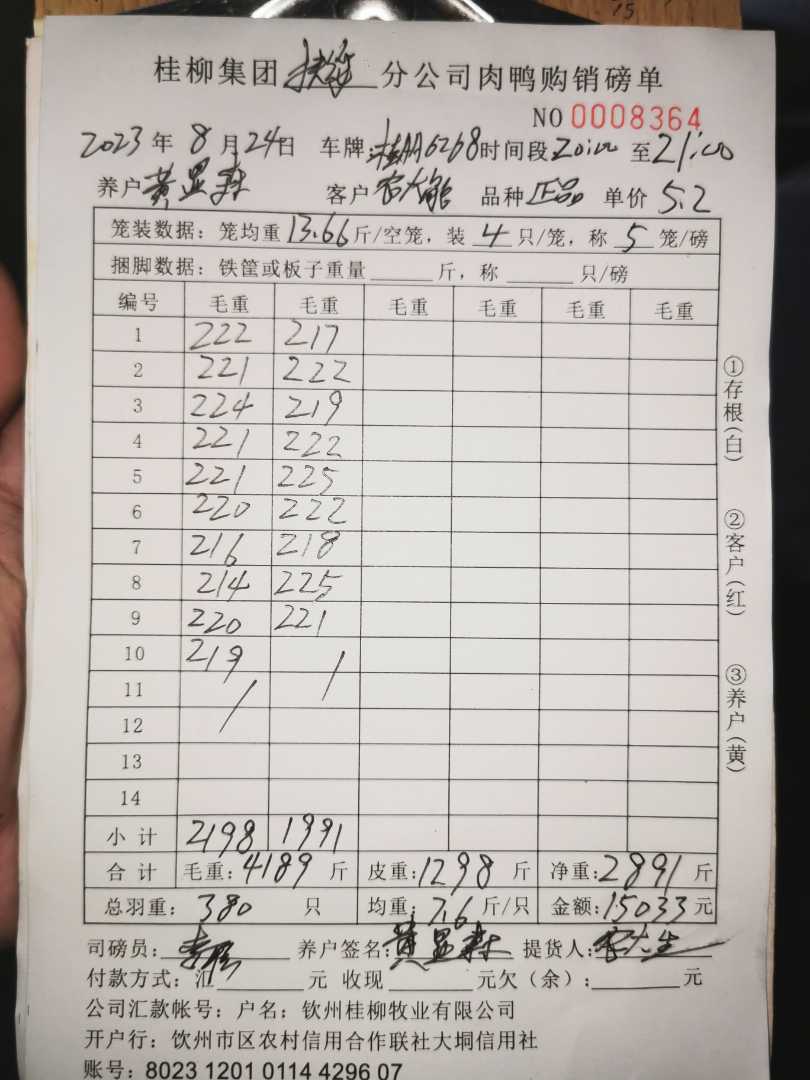 桂柳集团 分公司肉鸭购销磅单
NO 0008364
2023年8月24日 车牌:桂AA6268时间段20:00至21:00
养户黄显森 客户 品种正品 单价5.2
笼装数据:笼均重13.66斤/空笼,装4只/笼,称5笼/磅
捆脚数据:铁筐或板子重量 斤,称 只/磅
编号 毛重 毛重 毛重 毛重 毛重 毛重
1 222 217
2 221 222
3 224 219
4 221 222
5 221 225
6 220 222
7 216 218
8 214 225
9 220 221
10 219 /
11 /
12
13
14
小计 2198 1991
合计 毛重:4189斤 皮重:1298斤 净重:2891斤
总羽重:380只 均重:7.6斤/只 金额:15033元
司磅员: 养户签名:黄显森 提货人:
付款方式:汇 元 收现 元欠(余): 元
公司汇款帐号:户名:钦州桂柳牧业有限公司
开户行:饮州市区农村信用合作联社大垌信用社
账号:8023 1201 0114 4296 07
①存根(白)
②客户(红)
③养户(黄)